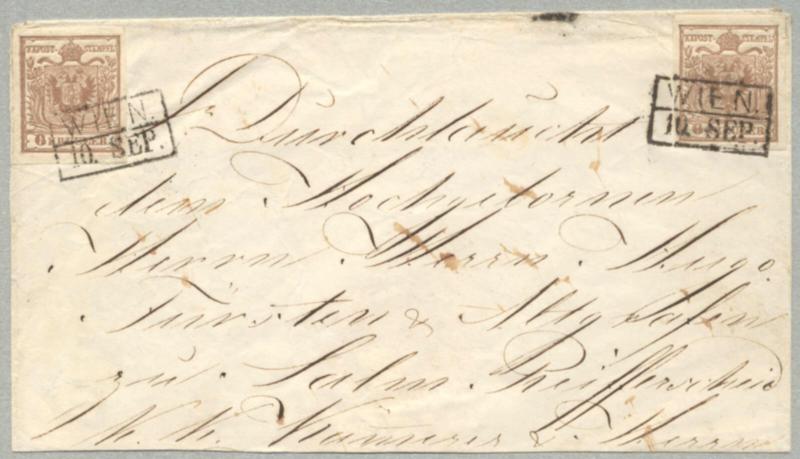 KKPOST-STEMPEL KKPOST-STEMPEL
6 KREUZER
WIEN. WIEN.
10. SEP. 10. SEP.
Durchlaucht
dem Hochgebornen
Herrn Herrn Hugo
Fürsten & Altgrafen
zu Salm Reifferscheid
K. K. Kämmerer & Herrn